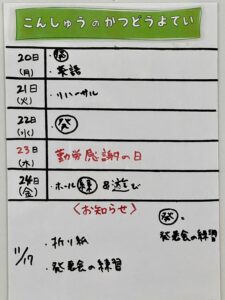 こんしゅうのかつどうよてい
20日
(月)
・英語
21日
(火)
・リハーサル
22日
(水)
・発
23日
(木)
勤労感謝の日
24日
(金)
・ホール練&遊び
〈お知らせ〉
発…
発表会の練習
11/17
・折り紙
・発表会の練習